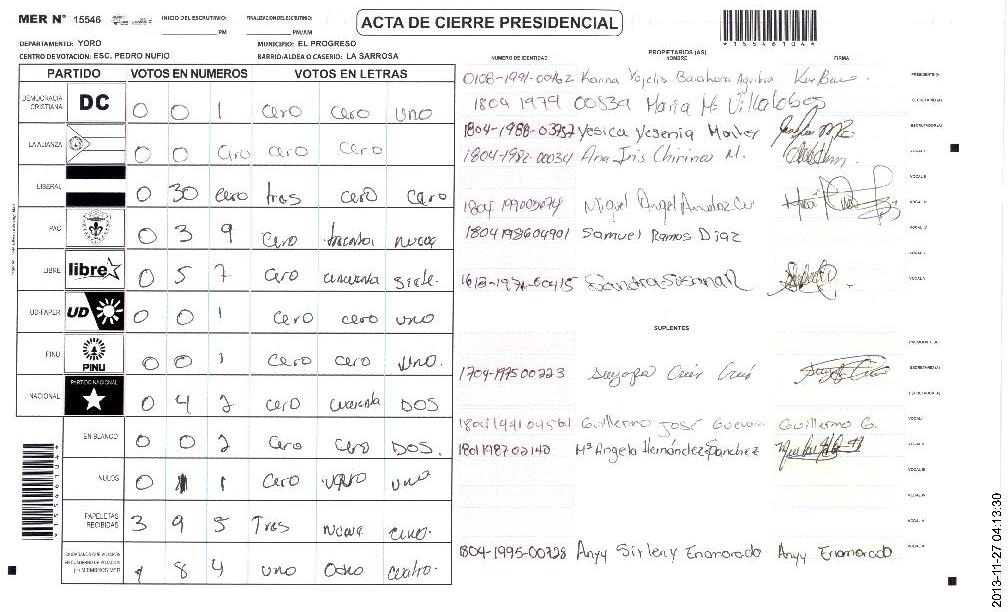 MER N° 15546 INICIO DEL ESCRUTINIO: PM FINALIZACION DEL ESCRUTINIO: PM/AM ACTA DE CIERRE PRESIDENCIAL
*155461044*
DEPARTAMENTO: YORO MUNICIPIO: EL PROGRESO
CENTRO DE VOTACION: ESC. PEDRO NUFIO BARRIO/ALDEA O CASERIO: LA SARROSA
PROPIETARIOS (AS)
NUMERO DE IDENTIDAD NOMBRE FIRMA
PARTIDO VOTOS EN NUMEROS VOTOS EN LETRAS
DEMOCRACIA CRISTIANA DC 0 0 1 cero cero uno
LA ALIANZA 0 0 cero cero cero
LIBERAL 0 30 cero tres cero cero
PAC 0 3 9 cero treinta nueve
LIBRE libre 0 5 7 cero cincuenta siete.
UD-FAPER UD 0 0 1 cero cero uno
PINU PINU 0 0 1 cero cero uno.
NACIONAL PARTIDO NACIONAL 0 4 2 cero cuarenta DOS
EN BLANCO 0 0 2 cero cero DOS.
NULOS 0 1 1 cero uno
PAPELETAS RECIBIDAS 3 9 5 Tres nueve cinco.
CIUDADANOS QUE VOTARON EN CUADERNO DE VOTACION MIEMBROS MER 1 8 4 uno Ocho cuatro.
0108-1991-00462 Karina PRESIDENTE(A)
1804 1979 00539 Maria Ma Villalobos SECRETARIO(A)
1804-1988-03757 Yesica Yesenia ESCRUTADOR(A)
1804-1982-00034 Ana Iris Chirinos M. VOCAL I
VOCAL II
Miguel Angel VOCAL III
1804198604901 Samuel Ramos Diaz VOCAL IV
VOCAL V
1613-1971-00415 Sandra VOCAL VI
SUPLENTES
PRESIDENTE(A)
1704-1975 00223 Suyapa Cruz Cruz SECRETARIO(A)
ESCRUTADOR(A)
1804199104561 Guillermo José Guevara Guillermo G. VOCAL I
1801198702140 Ma Angela Hernández Sanchez VOCAL II
VOCAL III
VOCAL IV
VOCAL V
1804-1995-00728 Anyy Sirleny Enamorado Anyy Enamorado VOCAL VI
2013-11-27 04:13:30